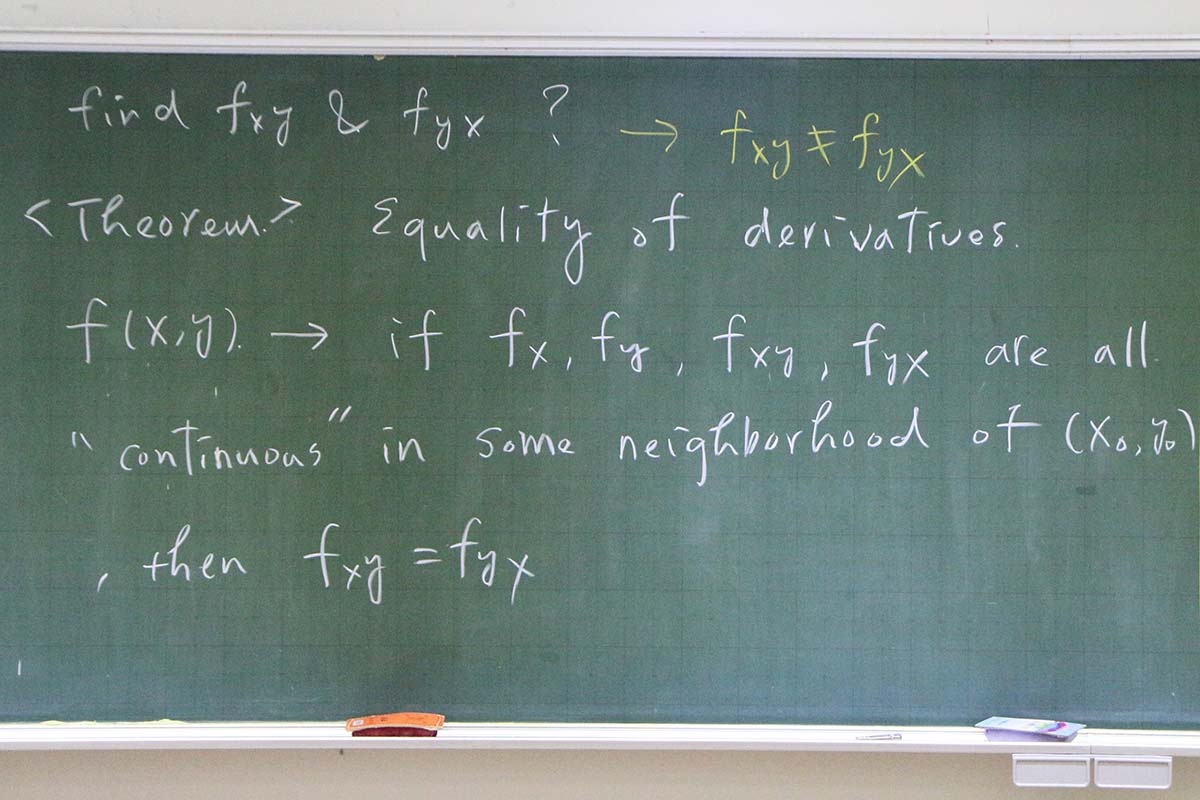 find fxy & fyx ? → fxy ≠ fyx
<Theorem.> Equality of derivatives.
f(x,y). → if fx, fy, fxy, fyx are all.
"continuous" in some neighborhood of (x₀,y₀)
, then fxy = fyx